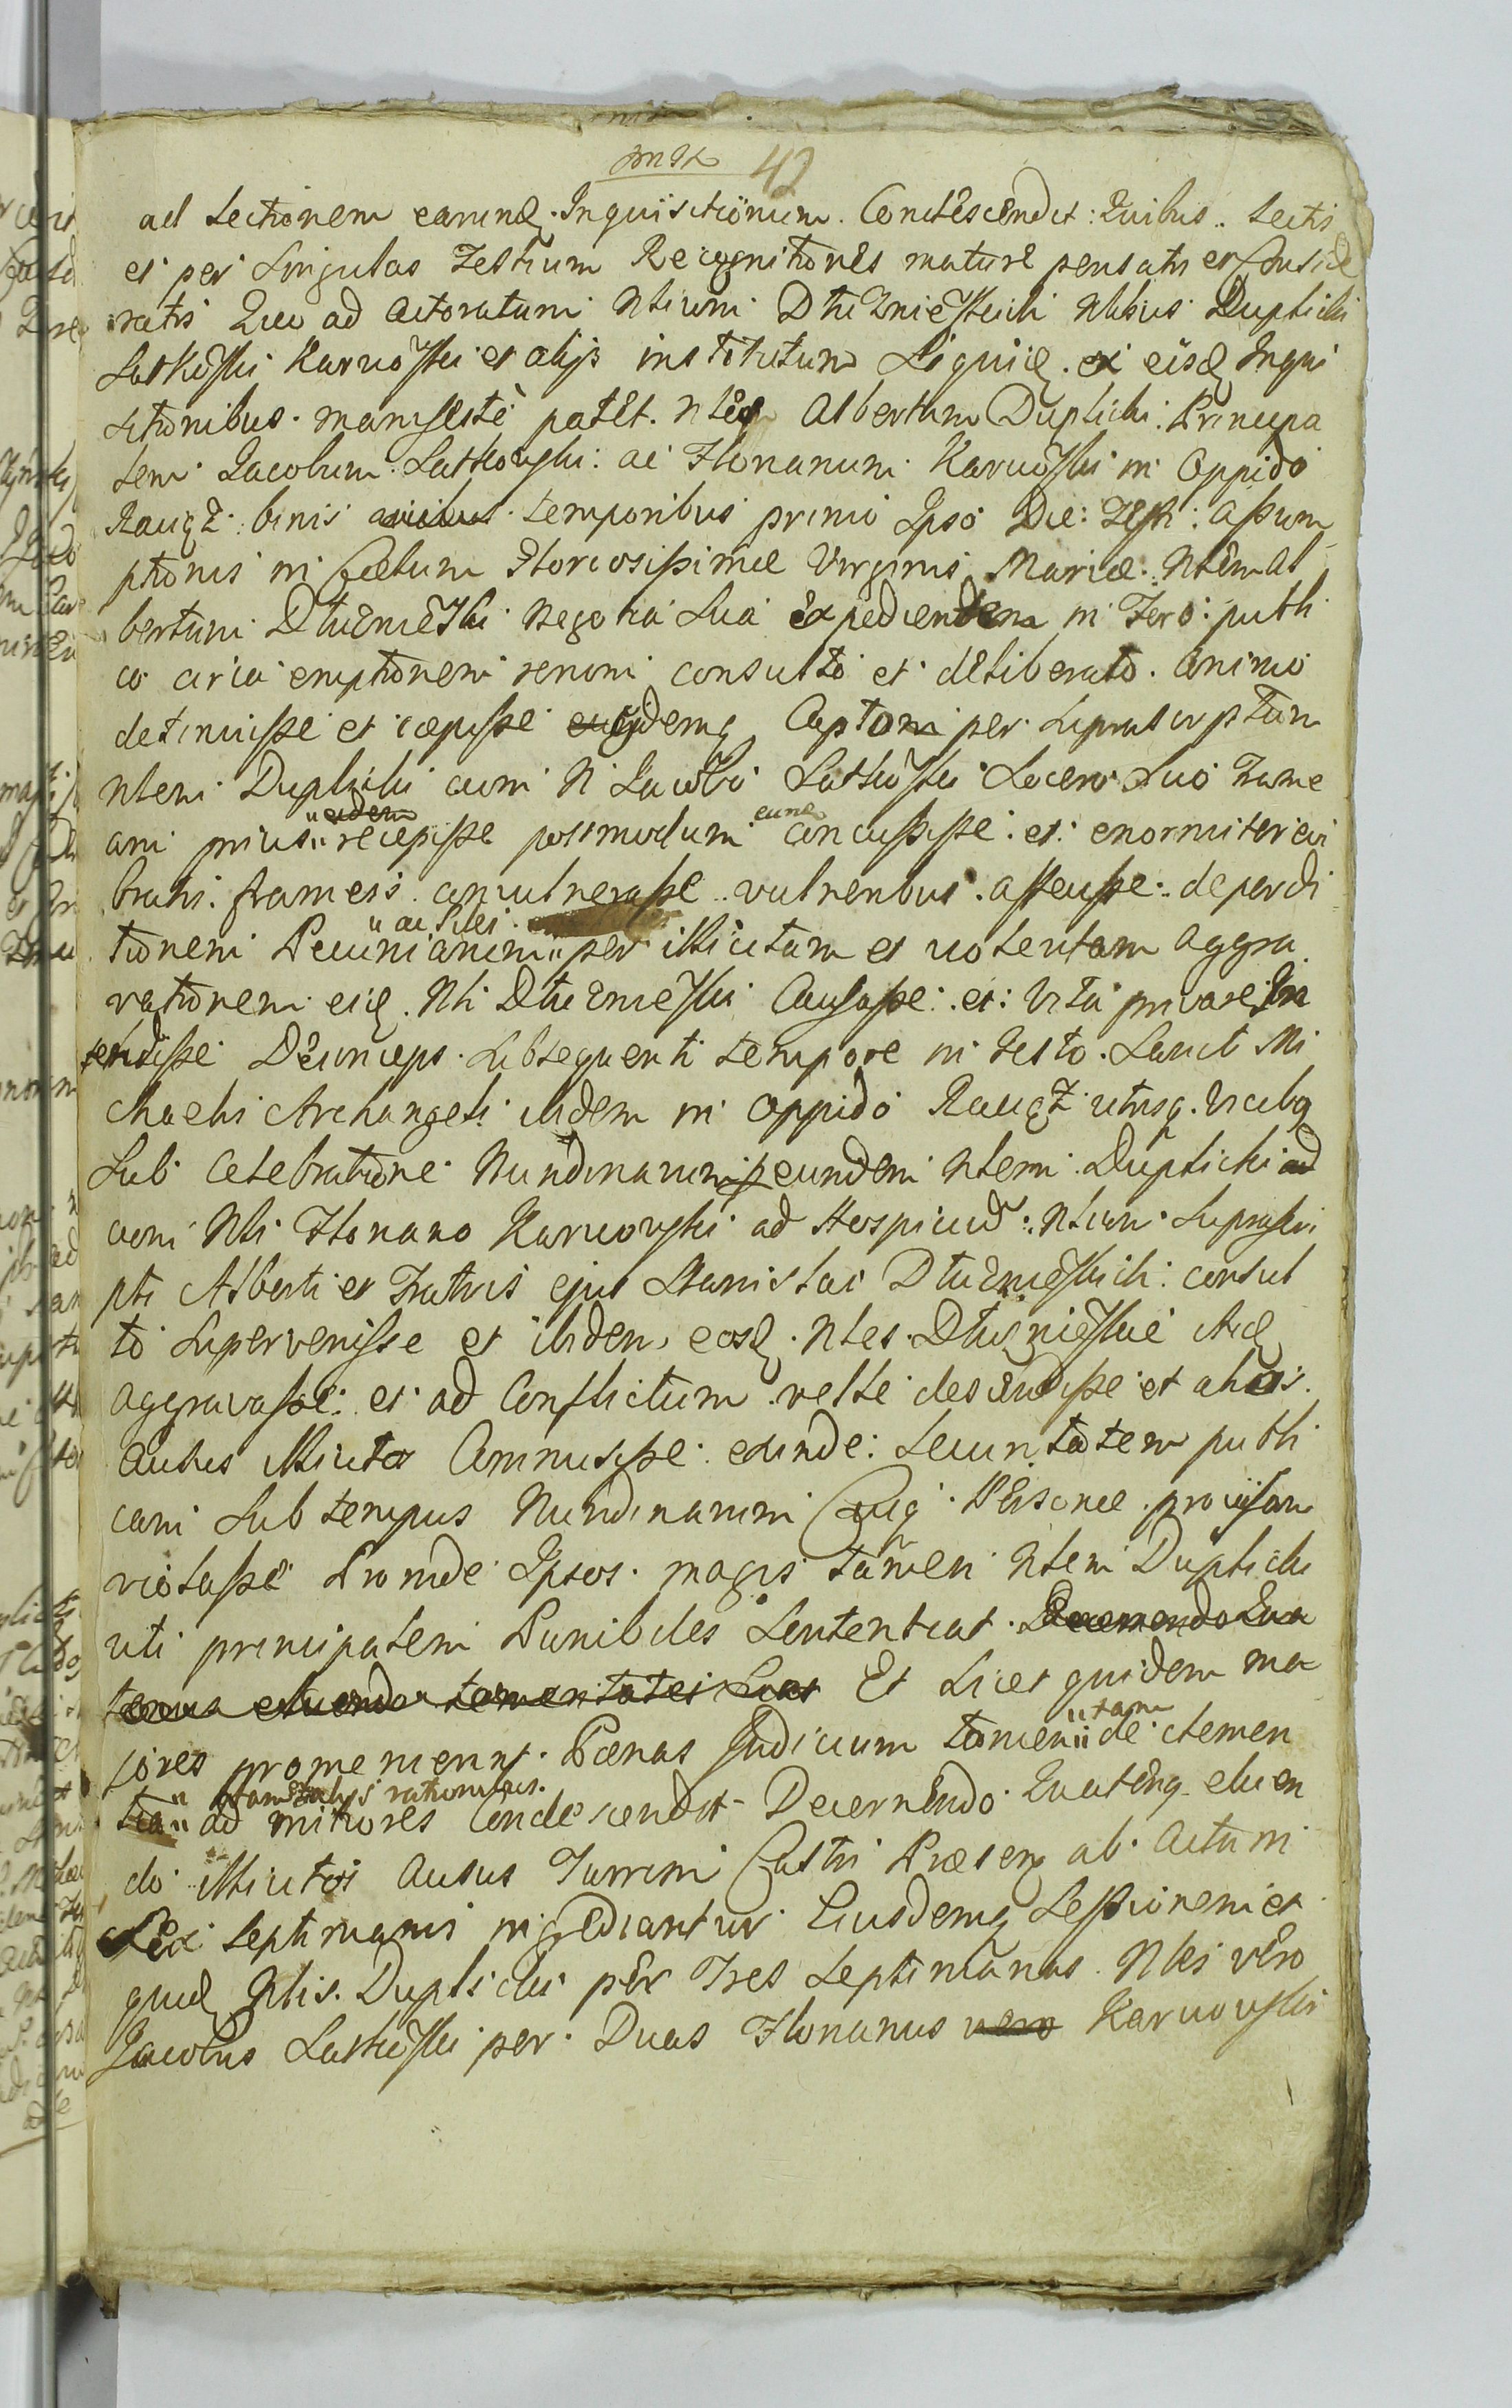 42
ad Lectionem earund. Inquisitionum. Condescendit: Quibus. Lectis
et per Singulas Testium Recognitiones mature pensatis et Conside
ratis Quo ad Actoratum Nlium Dłużniewskich Nlibus Duplicki
Lutkowski Karwowski et alijs institutum Liquid. ex eisd Inqui
sitionibus. manifestè patèt. Nlem Albertum Duplicki. Principa
lem Jacobum. Lutkowski. ac Florianum Karwowski in Oppido
Raygr. binis temporibus primo Ipso Die: Festi: Assum
ptionis in Cœlum Gloriosissimæ Virginis Mariæ. Nlem Al
bertum Dłużniewski Negotia Sua Expedientem in Foro publi
co circa emptionem consultò et dèliberato. animo
detinuisse et cœpisse eundemq Captum per Suprascriptum
Nlem Duplicki cum N Jacobo Lutkowski Socero Suo Frame
am prius recepisse postmodum eum concussisse. et: enormiter
brati. frameis. convulnerasse vulneribus. affecisse. deperdi
tionem Pecuniarum ac Rei per illicitam et violentam aggra
vationem eid. Nli Dłużniewski Causasse: et: Vita privare In
tendisse Deinceps Subsequenti tempore in Festo. Sancti Mi
chaelis Archangeli ibidem in Oppido Raygr utrisq. vicibq
Sub Celebratione Nundinarum eundem Nlem Duplicki
cum Nli Floriano Karwowski ad Hospicium Nlium Suprascri
pti Alberti et Fratris ejus Stanislai Dłużniewskich: consul
to Supervenisse et ibidem eosd. Nles. Dłużniewskie
aggravasse: et ad Conflictum velle descendisse et alios.
Ausus Illicitos Commisisse. exinde: Securitatem publi
cam Sub tempus Nundinarum Cuiq. Personæ. provisam
violasse Proinde Ipsos. magis tamen Nlem Duplicki
uti principalem Punibiles Sententiat. Decernendo Qua
tenus eluendo temeritates Suas Et Licet quidem ma
jores promeruerunt. Pœnas Judicium tamen tam de clemen
tia quam alijs rationibus. ad mitiores Condescendit Decernendo Quatenq eluen
do Illicitos Ausus Turrim Castri Præsenq ab Actu in
Sex Septimanis ingrediantur Eiusdemq Sessionem et
quid Nlis. Duplicki pèr Tres Septimanas. Nlis vèro
Jacobus Lutkowski per. Duas Florianus vero Karwowski